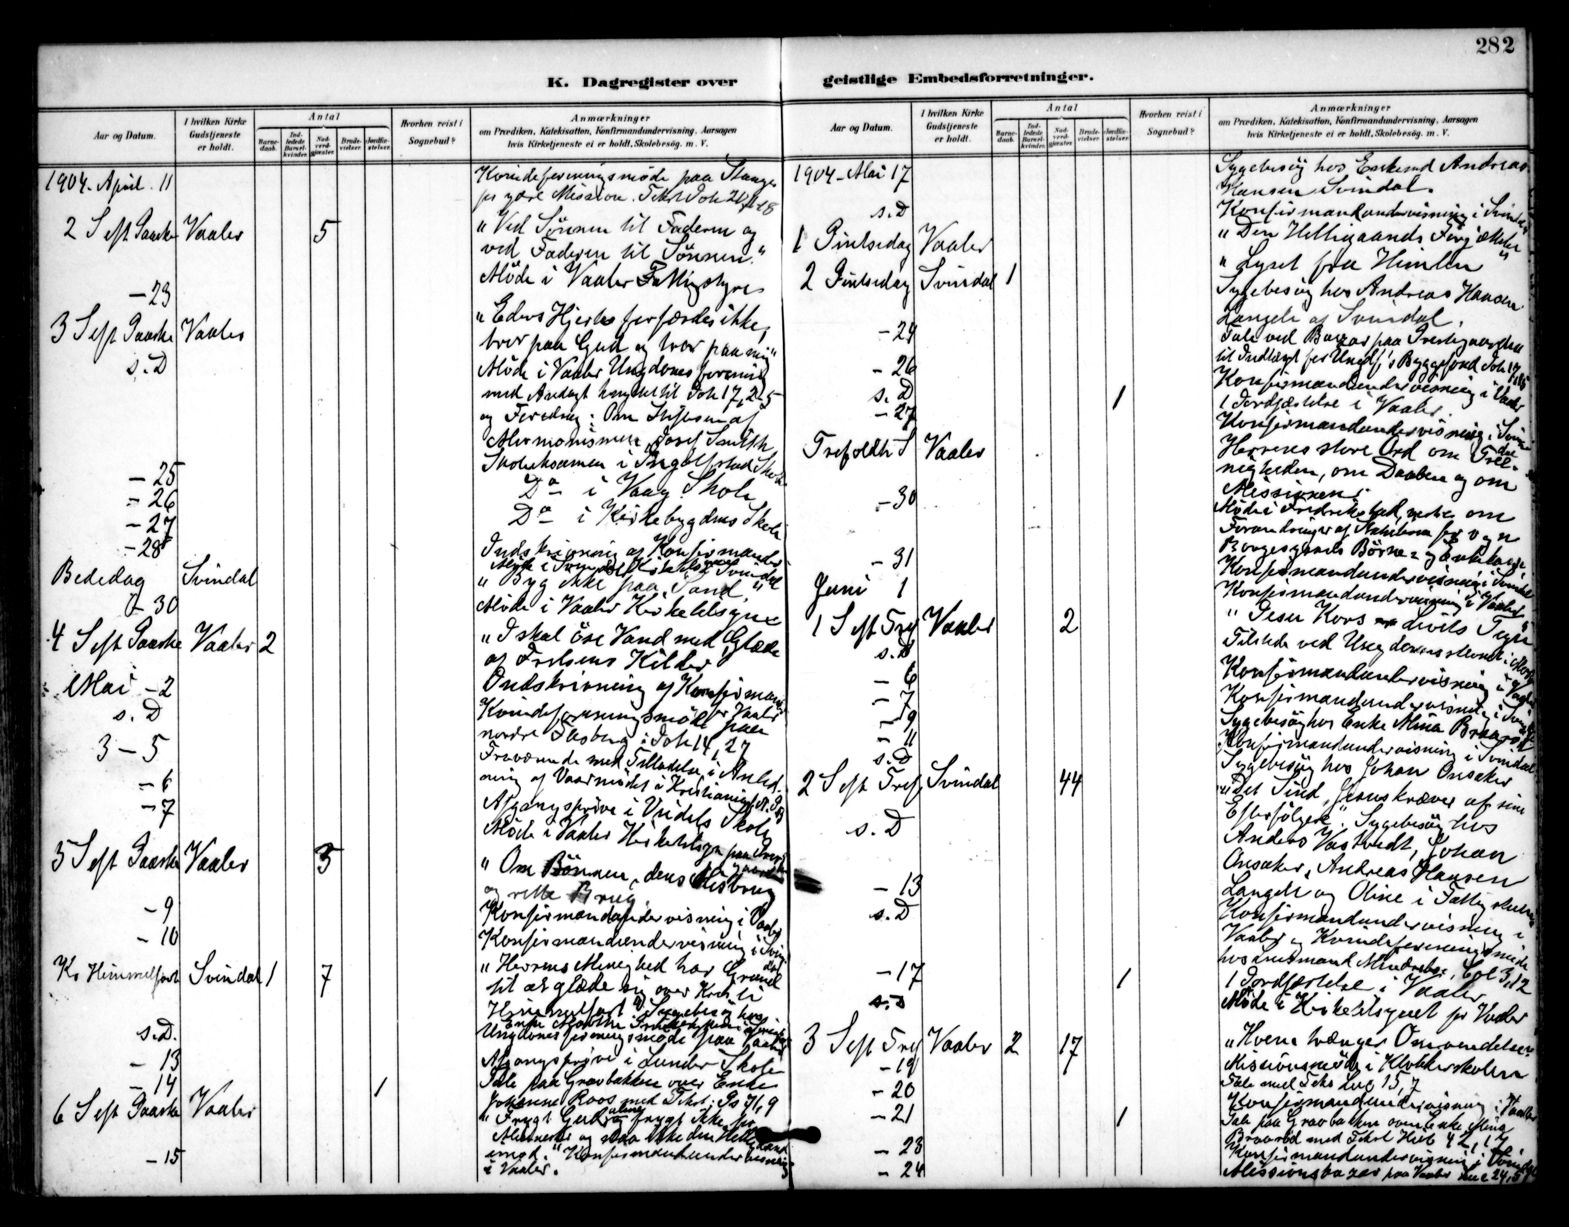 282
K. Dagregister over geistlige Embedsforretninger.
Aar og Datum.
I hvilken Kirke Gudstjeneste er holdt.
Antal
Barne-daab.
Ind-ledede Barsel-kvinder.
Nad-verd-gjester.
Brude-vielser
Jordfæ-stelser
Hvorhen reist i Sognebud?
Anmærkninger
om Prædiken, Katekisation, Konfirmandundervisning, Aarsagen
hvis Kirketjeneste ei er holdt, Skolebesøg. m. V.
1904 April 11
Kvindeforeningsmøde paa Stange
for ydre Mission. Tekst Joh 21
2 S eft Paaske Vaaler 5
" Ved Sønnen til Faderen og
ved Faderen til Sønnen."
- 23
Møde i Vaaler Fattigstyre
3 S eft Paaske Vaaler
" Eders Hjerte forfærdes ikke,
tror paa Gud og tror paa mig"
s. D
Møde i Vaaler Ungdomsforening
med Andagt knyttet til Joh 17, 2-5
og Foredrag: Om Stifteren af
Mormonismen Josef Smith
- 25
Skoleeksamen i Ingolfstad Skole
- 26
Do i Vaag Skole
- 27
Do i Kirkebygdens Skole
- 28
Indskrivning af Konfirmander
Bededag Svindal
" Byg ikke paa Sand"
- 30
Møde i Vaaler Kirketilsyn
4 S eft Paaske Vaaler 2
" I skal øse Vand med Glæde
af Frelsens Kilder
Mai - 2
Indskrivning af Konfirman
s. D
Kvindeforeningsmøde paa
nordre Joh 14, 27
3 - 5
Fraværende med Tilladelse i Anled-
ning af Vaarmødet i Kristiania
- 6
Afgangsprøve i Skole
- 7
Møde i Vaaler Kirketilsyn paa
5 S eft Paaske Vaaler 5
" Om Bønnen, dens Misbrug
og rette Brug.
- 9
Konfirmandundervisning i Vaaler
- 10
Konfirmandundervisning i Svin
dal
Kr Himmelfart Svindal 1 7
" Herrens Menighed har Grund
til at glæde sig over Kristi
Himmelfart" Sygebesøg hos
Enke
s. D.
Ungdomsforeningsmøde paa Vaaler
- 13
Afgangsprøve i Lunder Skole
- 14 1
Tale paa Gravbakken over Enke
Johanne Roos med Tekst: Ps 71, 9
6 S eft Paaske Vaaler
" Frygt Gud alene frygt ikke for
Mennesker og staa ikke den Hellig
imod." Konfirmandundervisning
- 15
i Vaaler.
Aar og Datum.
I hvilken Kirke Gudstjeneste er holdt.
Antal
Barne-daab.
Ind-ledede Barsel-kvinder.
Nad-verd-gjester
Brude-vielser
Jordfæ-stelser
Hvorhen reist i Sognebud?
Anmærkninger
om Prædiken, Katekisation, Konfirmandundervisning, Aarsagen
hvis Kirketjeneste ei er holdt, Skolebesøg. m. V.
1904 - Mai 17
Sygebesøg hos Enkemd Andreas
Hansen Svindal.
s. D
Konfirmandundervisning i Svindal
1 Pintsedag Vaaler
" Den Helligaands
2 Pintsedag Svindal 1
" Lyset fra Himlen
Sygebesøg hos Andreas Hansen
Langeli af Svindal.
- 24
Tale ved Bazar paa Prestegaarden
til Indtægt for Byggefond Joh 17
- 26
Konfirmandundervisning i Vaaler
s. D 1
1 Jordfæstelse i Vaaler.
- 27
Konfirmandundervisning i Svin
dal
Trefoldh S Vaaler
Herrens store Ord om Tree-
nigheden, om Daaben og om
Missionen.
- 30
Møde i Fredrikstad om
Forandringer af
Børne- og
- 31
Konfirmandundervisning i Svindal
Juni 1
Konfirmandundervisning i Vaaler
1 S eft Tref Vaaler 2
" Jesu Kors Livets
s. D
Tilstede ved Ungdomsstevnet i
- 6
Konfirmandundervisning i Vaaler
- 7
Konfirmandundervisning i Svindal
- 9
Sygebesøg hos Enke Mina Braarød
- 11
Konfirmandundervisning i Svindal
s. D
Sygebesøg hos Johan Onsaker
2 S eft Tref Svindal 44
" Det Sind, Jesus kræver af sine
Efterfølgere". Sygebesøg hos
s. D
Anders Vastvedt, Johan
Onsaker, Andreas Hansen
Langeli og Oline i Fattig
- 13
Konfirmandundervisning i
s. D
Vaaler og Kvindeforeningsmøde
hos Col 3, 12
- 17 1
1 Jordfæstelse i Vaaler.
s. D
Møde i Kirketilsynet for Vaaler
3 S eft Tref Vaaler 2 17
" Hvem trænger Omvendelsen
- 19
Missionsmøde i Klokkerskolen
Tale med Tekst Luc 15, 7
- 20
Konfirmandundervisning i Vaaler
- 21 1
Tale paa Gravbakken over Enke Mina
Braarød med Tekst
- 23
Konfirmandundervisning i Svindal
- 24
Missionsbazar paa Vaaler